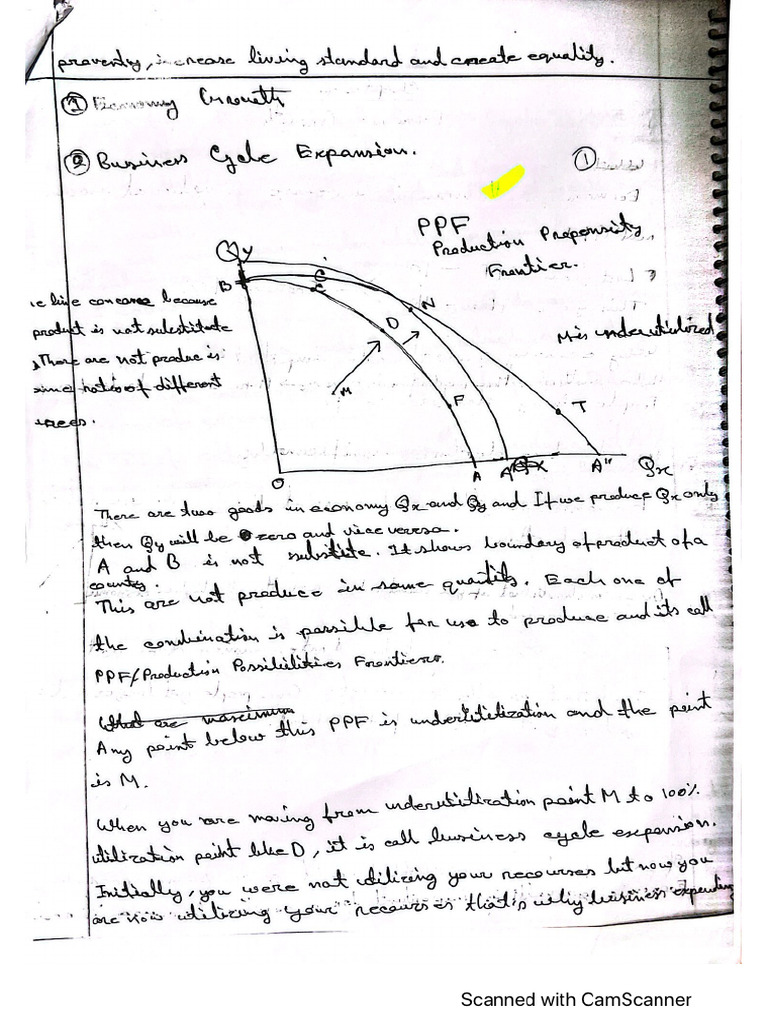 proverty, increase living standard and create equality.
① Economy Growth
② Business Cycle Expansion.
①
PPF
Production Propensity
Frontier.
Qy
B
C
C
N
D
M
F
T
O
A
A'
A"
Qx
M is underutilized
line concave because
product is not substitute
There are not produce is
ratio of different
There are two goods in economy Qx and Qy and If we produce Qx only
then Qy will be zero and vice versa.
A and B is not substite. It shows boundary of product of a
country.
This are not produce in same quantity. Each one of
the combination is possible for use to produce and its call
PPF/Production Possibilities Frontiers.
What are maximum
Any point below this PPF is underutilization and the point
is M.
When you are moving from underutilization point M to 100%
utilization point like D, it is call business cycle expansion.
Initially, you were not utilizing your recourses but now you
are now utilizing your recourses that's why business expending
Scanned with CamScanner